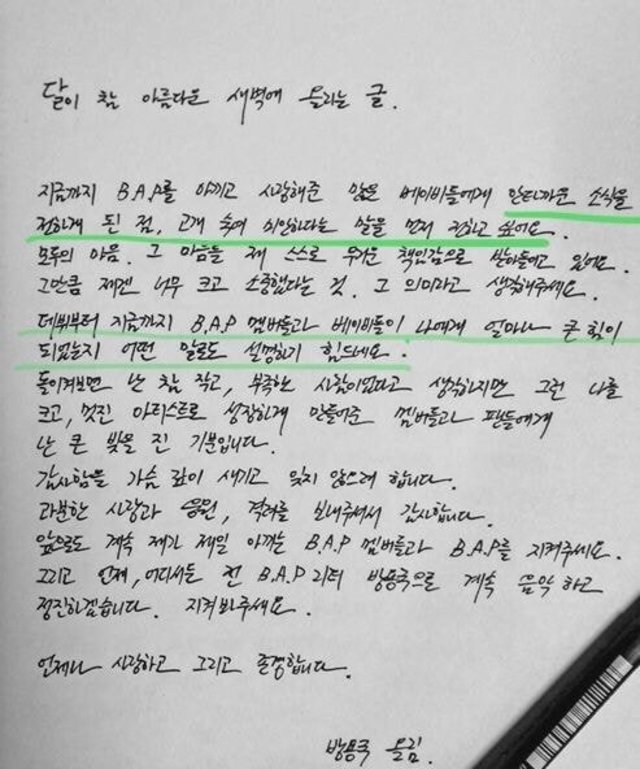 달이 참 아름다운 새벽에 올리는 글.
지금까지 B.A.P를 아끼고 사랑해준 많은 베이비들에게 안타까운 소식을
전하게 된 점, 고개 숙여 미안하다는 말을 먼저 전하고 싶어요.
모두의 마음. 그 마음들 제 스스로 무거운 책임감으로 받아들이고 있어요.
그만큼 제겐 너무 크고 소중했다는 것. 그 의미라고 생각해주세요.
데뷔부터 지금까지 B.A.P 멤버들과 베이비들이 나에게 얼마나 큰 힘이
되었는지 어떤 말로도 설명하기 힘드네요.
돌이켜보면 난 참 작고, 부족한 사람이었다고 생각하지만 그런 나를
크고, 멋진 아티스트로 성장하게 만들어준 멤버들과 팬들에게
난 큰 빚을 진 기분입니다.
감사함을 가슴 깊이 새기고 잊지 않으려 합니다.
과분한 사랑과 응원, 격려를 보내주셔서 감사합니다.
앞으로도 계속 제가 제일 아끼는 B.A.P 멤버들과 B.A.P를 지켜주세요.
그리고 언제, 어디서든 전 B.A.P 리더 방용국으로 계속 음악 하고
정진하겠습니다. 지켜봐주세요.
언제나 사랑하고 그리고 존경합니다.
방용국 올림.